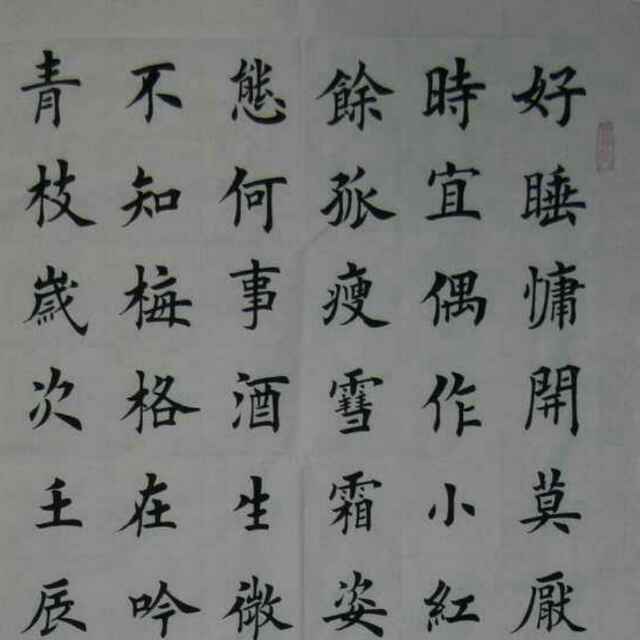 好睡慵開莫厭
時宜偶作小紅
餘孤瘦雪霜姿
態何事酒生微
不知梅格在吟
青枝歲次壬辰